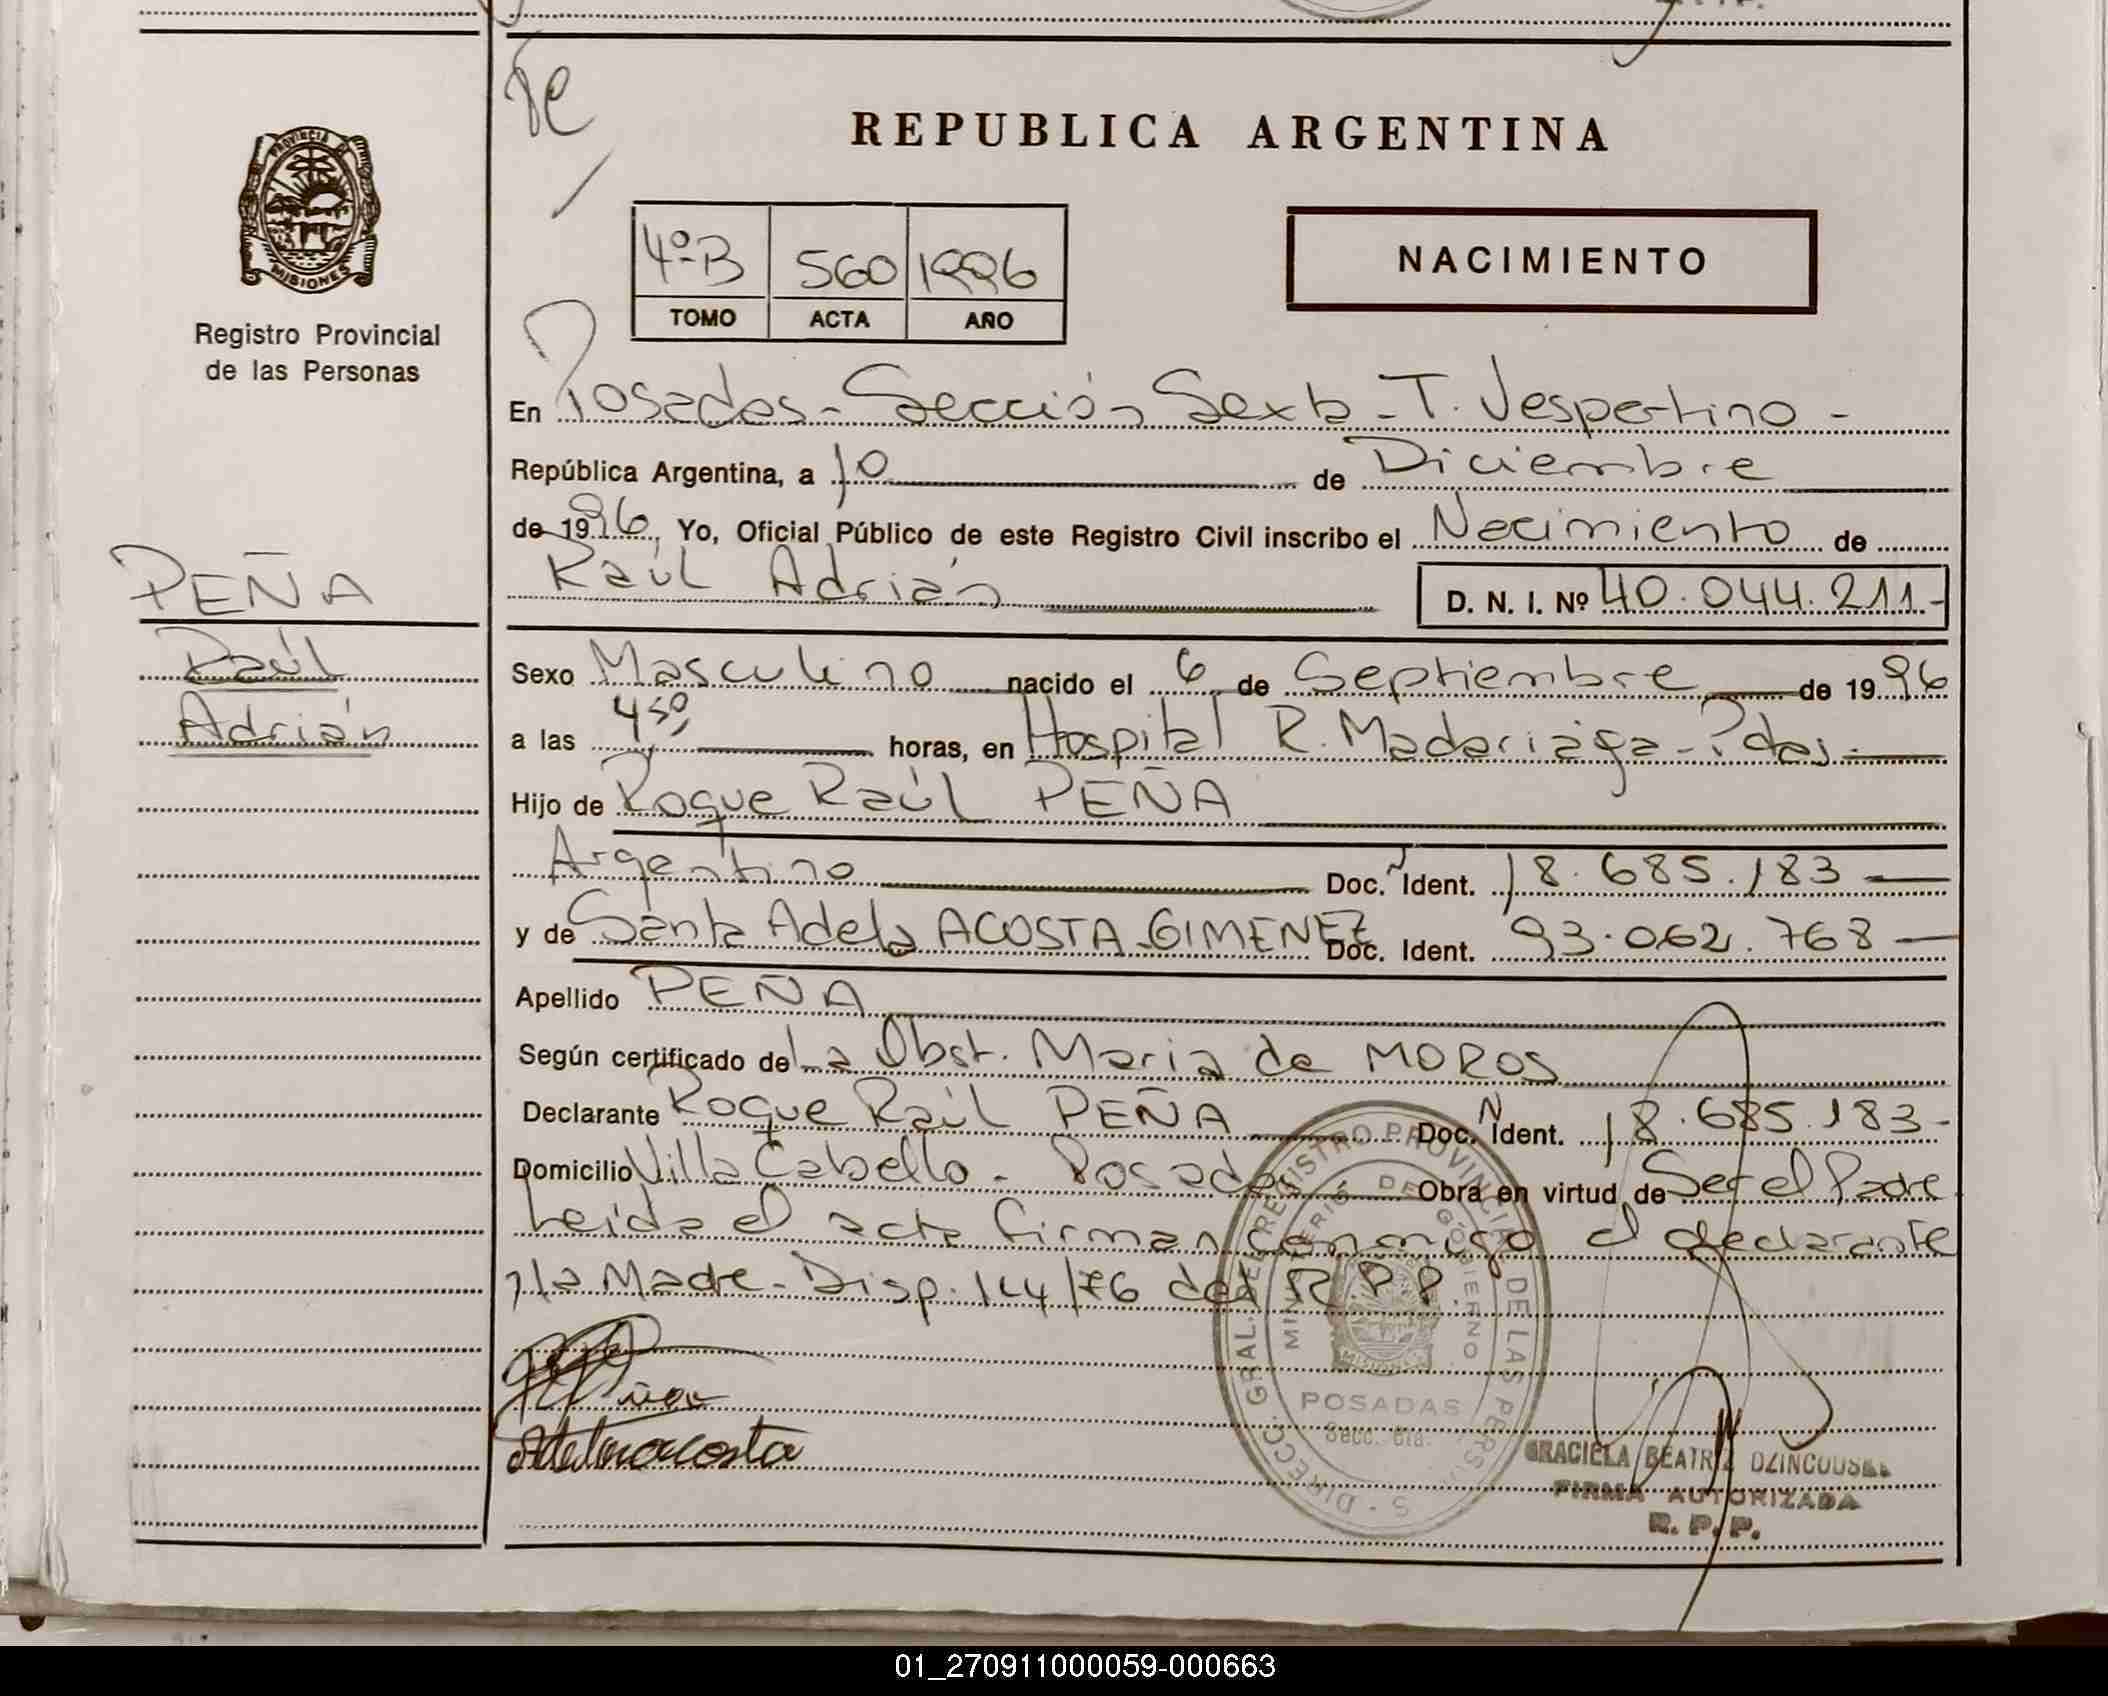 REPUBLICA ARGENTINA
PROVINCIA D
MISIONES
Registro Provincial
de las Personas
4º B 560 1996
TOMO ACTA AÑO
NACIMIENTO
En Posadas - Sección Sexta - T. Vespertino -
República Argentina, a 10 de Diciembre
de 1996, Yo, Oficial Público de este Registro Civil inscribo el Nacimiento de
Raúl Adrián D. N. I. Nº 40.044.211-
PEÑA
Raúl
Adrián
Sexo Masculino nacido el 6 de Septiembre de 1996
a las 4,50 horas, en Hospital R. Madariaga - Pdas.
Hijo de Roque Raúl PEÑA
Argentino Doc. Ñ Ident. 18.685.183
y de Santa Adela ACOSTA GIMENEZ Doc. Ident. 93.062.768
Apellido PEÑA
Según certificado de La Obst. Maria de MOROS
Declarante Roque Raúl PEÑA Doc. N Ident. 18.685.183-
Domicilio Villa Cabello - Posadas Obra en virtud de Ser el Padre
Leida el acta firman conmigo el declarante
y la Madre - Disp. 144/76 del R.P.P.
DIRECC. GRAL. DEL REGISTRO PROVINCIAL DE LAS PERSONAS
MINISTERIO DE GOBIERNO
MISIONES
POSADAS
Secc. 6ta.
Adelaacosta
GRACIELA BEATRIZ
FIRMA AUTORIZADA
R. P. P.
01_270911000059-000663